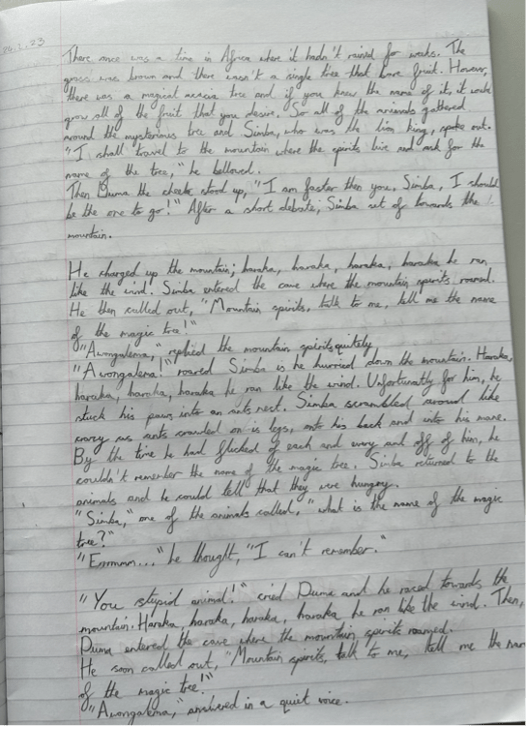 There once was a time in Africa where it hadn't rained for weeks. The
grass was brown and there wasn't a single tree that bore fruit. However,
there was a magical acacia tree and if you knew the name of it, it would
grow all of the fruit that you desire. So all of the animals gathered
around the mysterious tree and Simba, who was the lion king, spoke out.
"I shall travel to the mountain where the spirits live and ask for the
name of the tree," he bellowed.
Then Duma the cheetah stood up, "I am faster then you, Simba, I should
be the one to go!" After a short debate, Simba set of towards the
mountain.
He charged up the mountain; haraka, haraka, haraka, haraka he ran
like the wind. Simba entered the cave where the mountain spirits
He then called out, "Mountain spirits, talk to me, tell me the name
of the magic tree!"
"Awongalema," replied the mountain spirits quitely.
"Awongalema!" roared Simba as he hurried down the mountain. Haraka,
haraka, haraka, haraka he ran like the wind. Unfortunatly for him, he
stuck his paws into an ants nest. Simba scrambled around like
crazy as ants crawled on is legs, onto his back and into his mane.
By the time he had flicked of each and every ant off of him, he
couldn't remember the name of the magic tree. Simba returned to the
animals and he could tell that they were hungry.
"Simba," one of the animals called, "what is the name of the magic
tree?"
he thought, "I can't remember."
"You stupid animal!" cried Duma and he raced towards the
mountain. Haraka, haraka, haraka, haraka he ran like the wind. Then,
Duma entered the cave where the mountain spirits
He soon called out, "Mountain spirits, talk to me, tell me the
of the magic tree!"
"Awongalema," answered in a quiet voice.